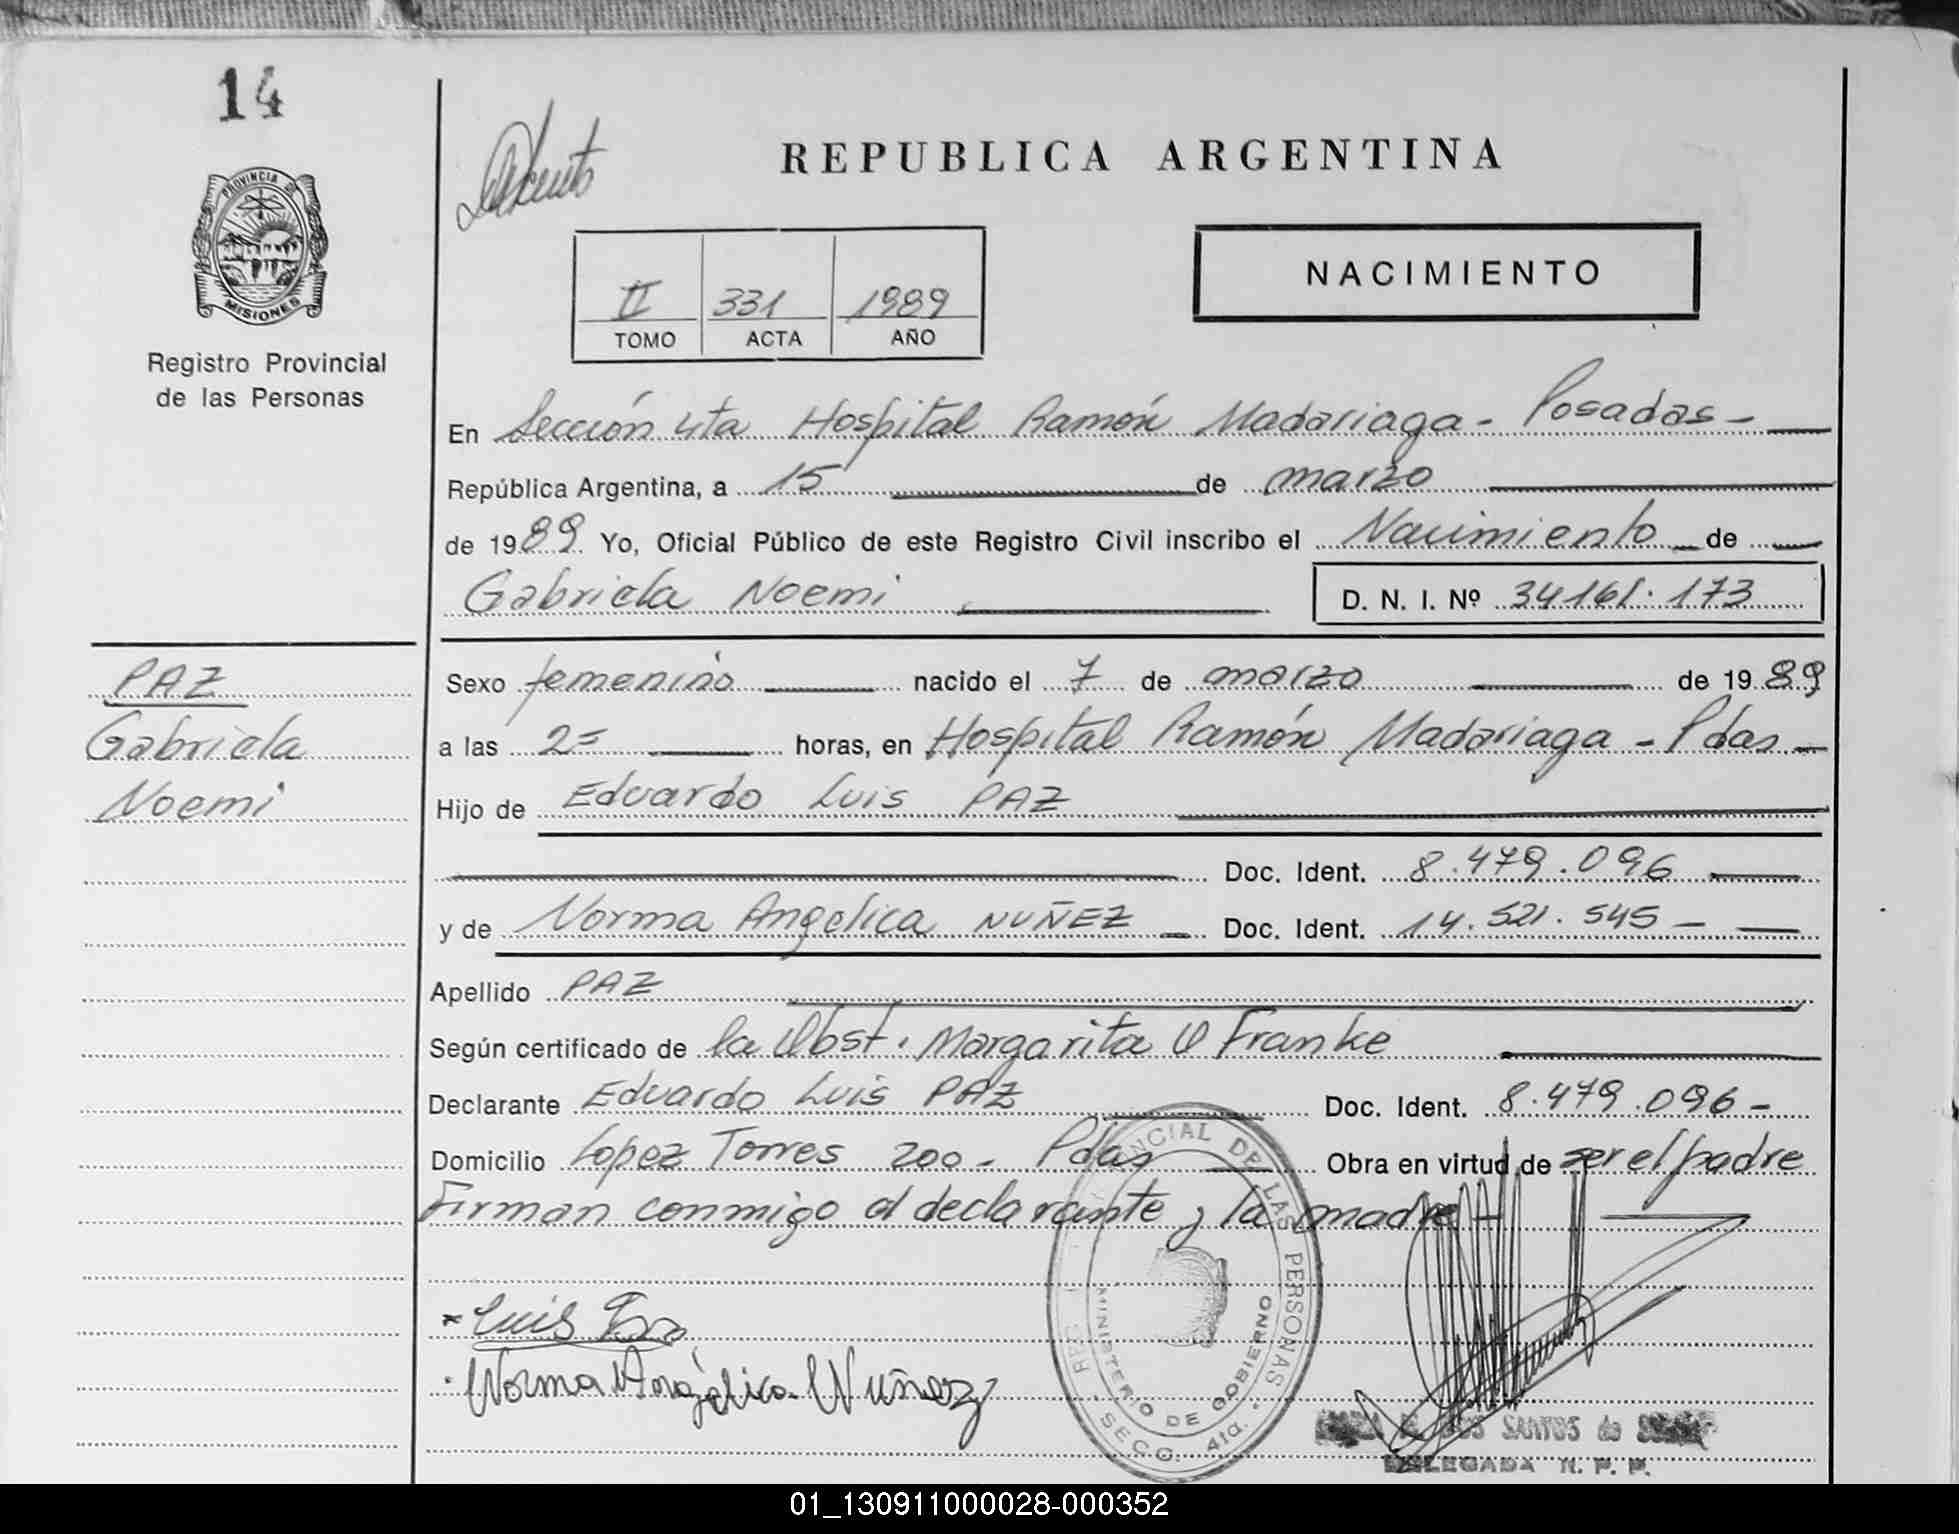 14
REPUBLICA ARGENTINA
PROVINCIA DE
MISIONES
Registro Provincial
de las Personas
II 331 1989
TOMO ACTA AÑO
NACIMIENTO
En Sección 4ta Hospital Ramón Madariaga - Posadas -
República Argentina, a 15 de marzo
de 1989 Yo, Oficial Público de este Registro Civil inscribo el Nacimiento de
Gabriela Noemi D. N. I. Nº 34161.173
PAZ
Gabriela
Noemi
Sexo femenino nacido el 7 de marzo de 1989
a las 2= horas, en Hospital Ramón Madariaga - Pdas -
Hijo de Eduardo Luis PAZ
Doc. Ident. 8.479.096
y de Norma Angelica NUÑEZ Doc. Ident. 14.521.545 -
Apellido PAZ
Según certificado de la Obst. Margarita O Franke
Declarante Eduardo Luis PAZ Doc. Ident. 8.479.096 -
Domicilio Lopez Torres 200 - Pdas Obra en virtud de ser el padre
Firman conmigo el declarante y la madre -
Luis Paz
Norma Angélica Nuñez
REG NCIAL DE LAS PERSONAS
MINISTERIO DE GOBIERNO
SECC. 4ta.
DOS SANTOS de
DELEGADA R. P. P.
01_130911000028-000352